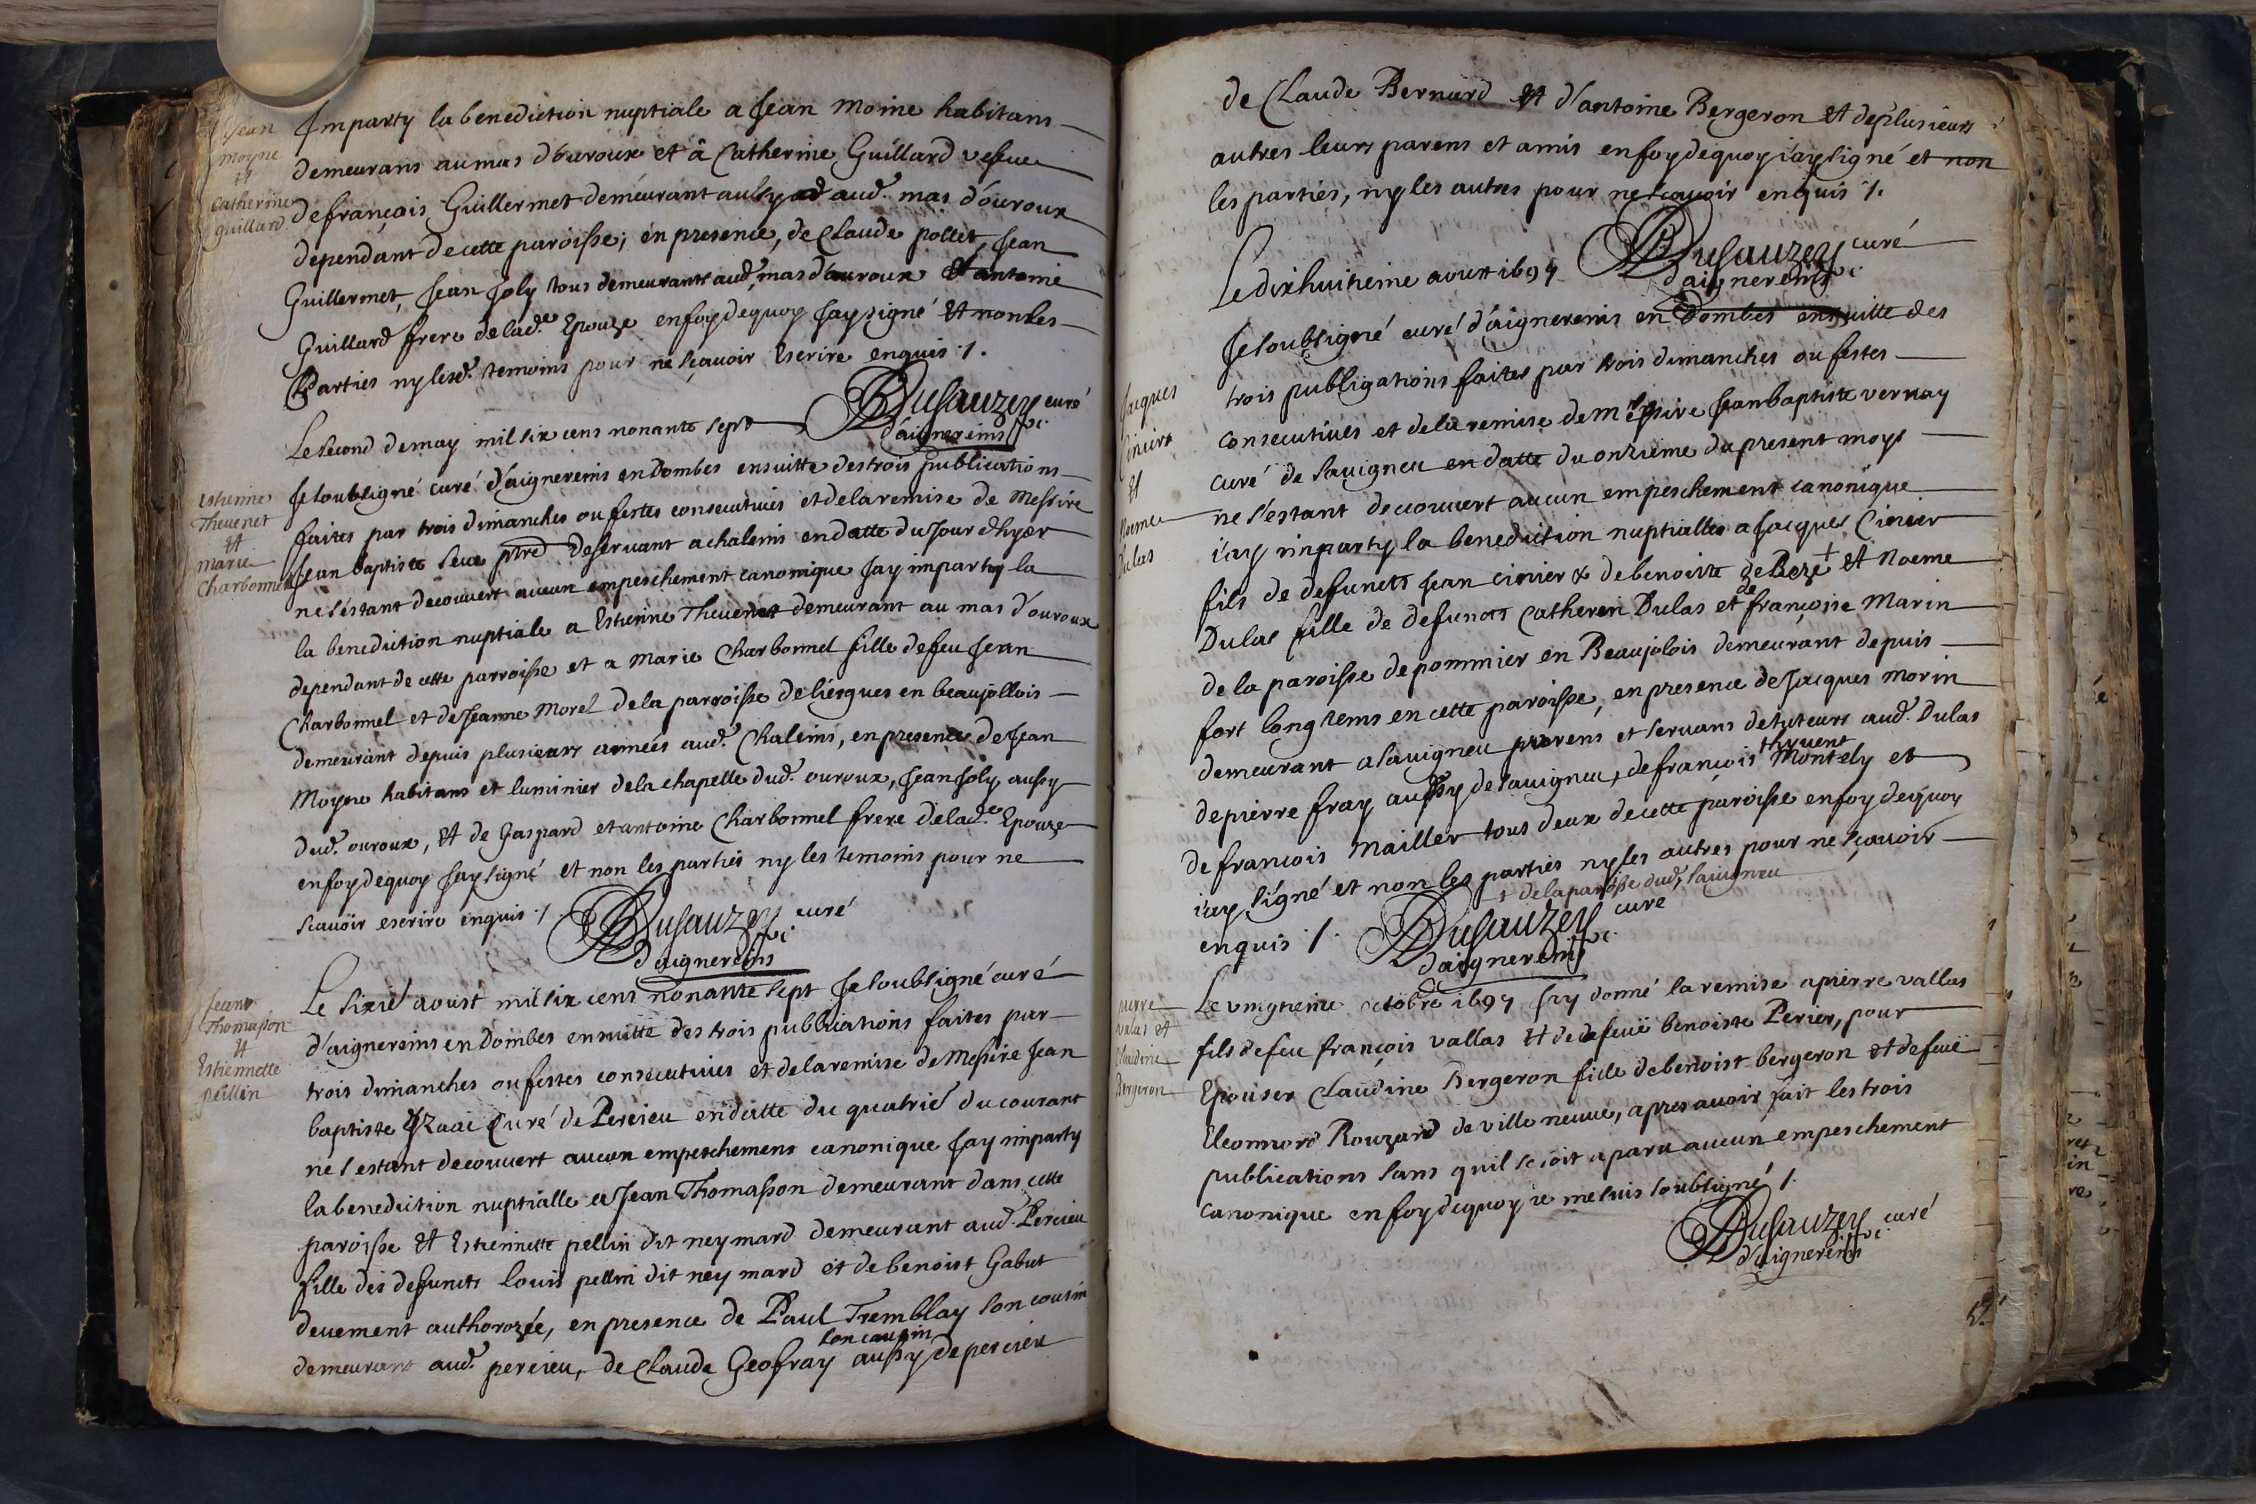 Jean
Moyne
et
Catherine
guillard
Imparty la benediction nuptiale a Jean Moine habitans
demeurans au mas d'ouroux et â Catherine Guillard vefue
de françois Guillermet demeurant aussy aud. mas d'ouroux
dependant de cette paroisse; en presence, de Claude pollet, Jean
Guillermet, Jean Joly tous demeurants aud. mas d'ouroux Et antoine
Guillard frere de lad.e Epouze en foy dequoy Jay signé Et non les
Parties ny lesd. temoins pour ne sçauoir Escrire enquis ./.
Dusauzey curé
d'aignereins
Le second de may mil six cens nonante sept
Estienne
Theuenet
et
Marie
Charbonnel
Je soubsigné curé d'aignereins en Dombes ensuitte des trois publications
faites par trois dimanches ou festes consecutiues et de la remise de Messire
Jean baptiste seue ptre deseruant a chaleins en datte du Jour d'hyer
ne s'estant decouuert aucun empeschement canonique Jay imparty la
la benediction nuptiale a Estienne Theuenet demeurant au mas d'ouroux
dependant de cette parroisse et a Marie Charbonnel fille de feu Jean
Charbonnel et de Jeanne Morel de la parroisse de liergues en beaujollois
demeurant depuis plusieurs années aud. Chaleins, en presence de Jean
Moyne habitans et luminier de la chapelle dud. ouroux, Jean Joly aussy
dud. ouroux, Et de Gaspard et antoine Charbonnel frere de lad.e Epouze
en foy dequoy Jay signé et non les parties ny les temoins pour ne
scauoir escrire enquis ./.
Dusauzey curé
d'aignereins
Jean
Thomasson
et
Estiennette
pellin
Le sixie aoust mil six cens nonante sept Je soubsigné curé
d'aignereins en Dombes ensuitte des trois publications faites par
trois dimanches ou festes consecutiues et de la remise de Messire Jean
baptiste Curé de Percieu en datte du quatrie du courant
ne s'estant decouuert aucun empeschemens canonique Jay imparty
la benediction nuptialle a Jean Thomasson demeurant dans cette
paroisse Et Estiennette pellin dit neymard demeurant aud. Percieu
fille des defuncts louis pellin dit neymard et de benoist Gabut
deuement authorozée, en presence de Paul Tremblay son cousin
demeurant aud. percieu, de Claude Geofray son cousin aussy de percieu
de Claude Bernard et d'antoine Bergeron Et de plusieurs
autres leurs parens et amis en foy dequoy i'ay signé et non
les parties, ny les autres pour ne scauoir enquis ./.
Dusauzey curé
d'aignereins
Le dixhuitieme aoust 1697
Jacques
Cinier
et
Noeme
Dulas
Je soubsigné curé d'aignereins en Dombes ensuitte des
trois publigations faites par trois dimanches ou festes
consecutiues et de la remise de Messire Jean baptiste vernay
curé de sauigneu en datte du onzieme du present moys
ne s'estant decouuert aucun empeschement canonique
i'ay imparty la benediction nuptialle a Jacques Cinier
fils de defuncts Jean cinier & de benoitte de Beze + et Noeme
Dulas fille de defuncts Catherin Dulas et de françoise Marin
de la paroisse de pommier en Beaujolois demeurant depuis
fort longtems en cette paroisse, en presence de Jacques morin
demeurant a sauigneu parens et seruans de tuteurs aud. Dulas
de pierre fray aussy de sauigneu, de françois thyuent Montely et
de francois Mailler tous deux de cette paroisse en foy dequoy
i'ay signé et non les parties ny les autres pour ne sçauoir
+ de la paroisse dud. sauigneu
enquis ./.
Dusauzey curé
d'aignereins
pierre
valas et
Claudine
Bergeron
Le vingtieme octobre 1697 J'ay donné la remise a pierre vallas
fils de feu françois vallas Et de defeuë benoiste Perier, pour
Epouser Claudine Bergeron fille de benoist bergeron et de feuë
Eleonnord Rouzard de ville neuue, apres auoir fait les trois
publications sans qu'il se soit aparu aucun empeschement
canonique en foy dequoy ie me suis soubsigné ./.
Dusauzey curé
d'aignereins